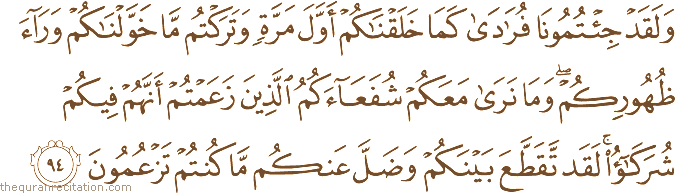 وَلَقَدْ جِئْتُمُونَا فُرَادَىٰ كَمَا خَلَقْنَاكُمْ أَوَّلَ مَرَّةٍ وَتَرَكْتُم مَّا خَوَّلْنَاكُمْ وَرَآءَ
ظُهُورِكُمْ ۖ وَمَا نَرَىٰ مَعَكُمْ شُفَعَآءَكُمُ ٱلَّذِينَ زَعَمْتُمْ أَنَّهُمْ فِيكُمْ
شُرَكَـٰٓؤُا۟ ۚ لَقَد تَّقَطَّعَ بَيْنَكُمْ وَضَلَّ عَنكُم مَّا كُنتُمْ تَزْعُمُونَ ٩٤
thequranrecitation.com